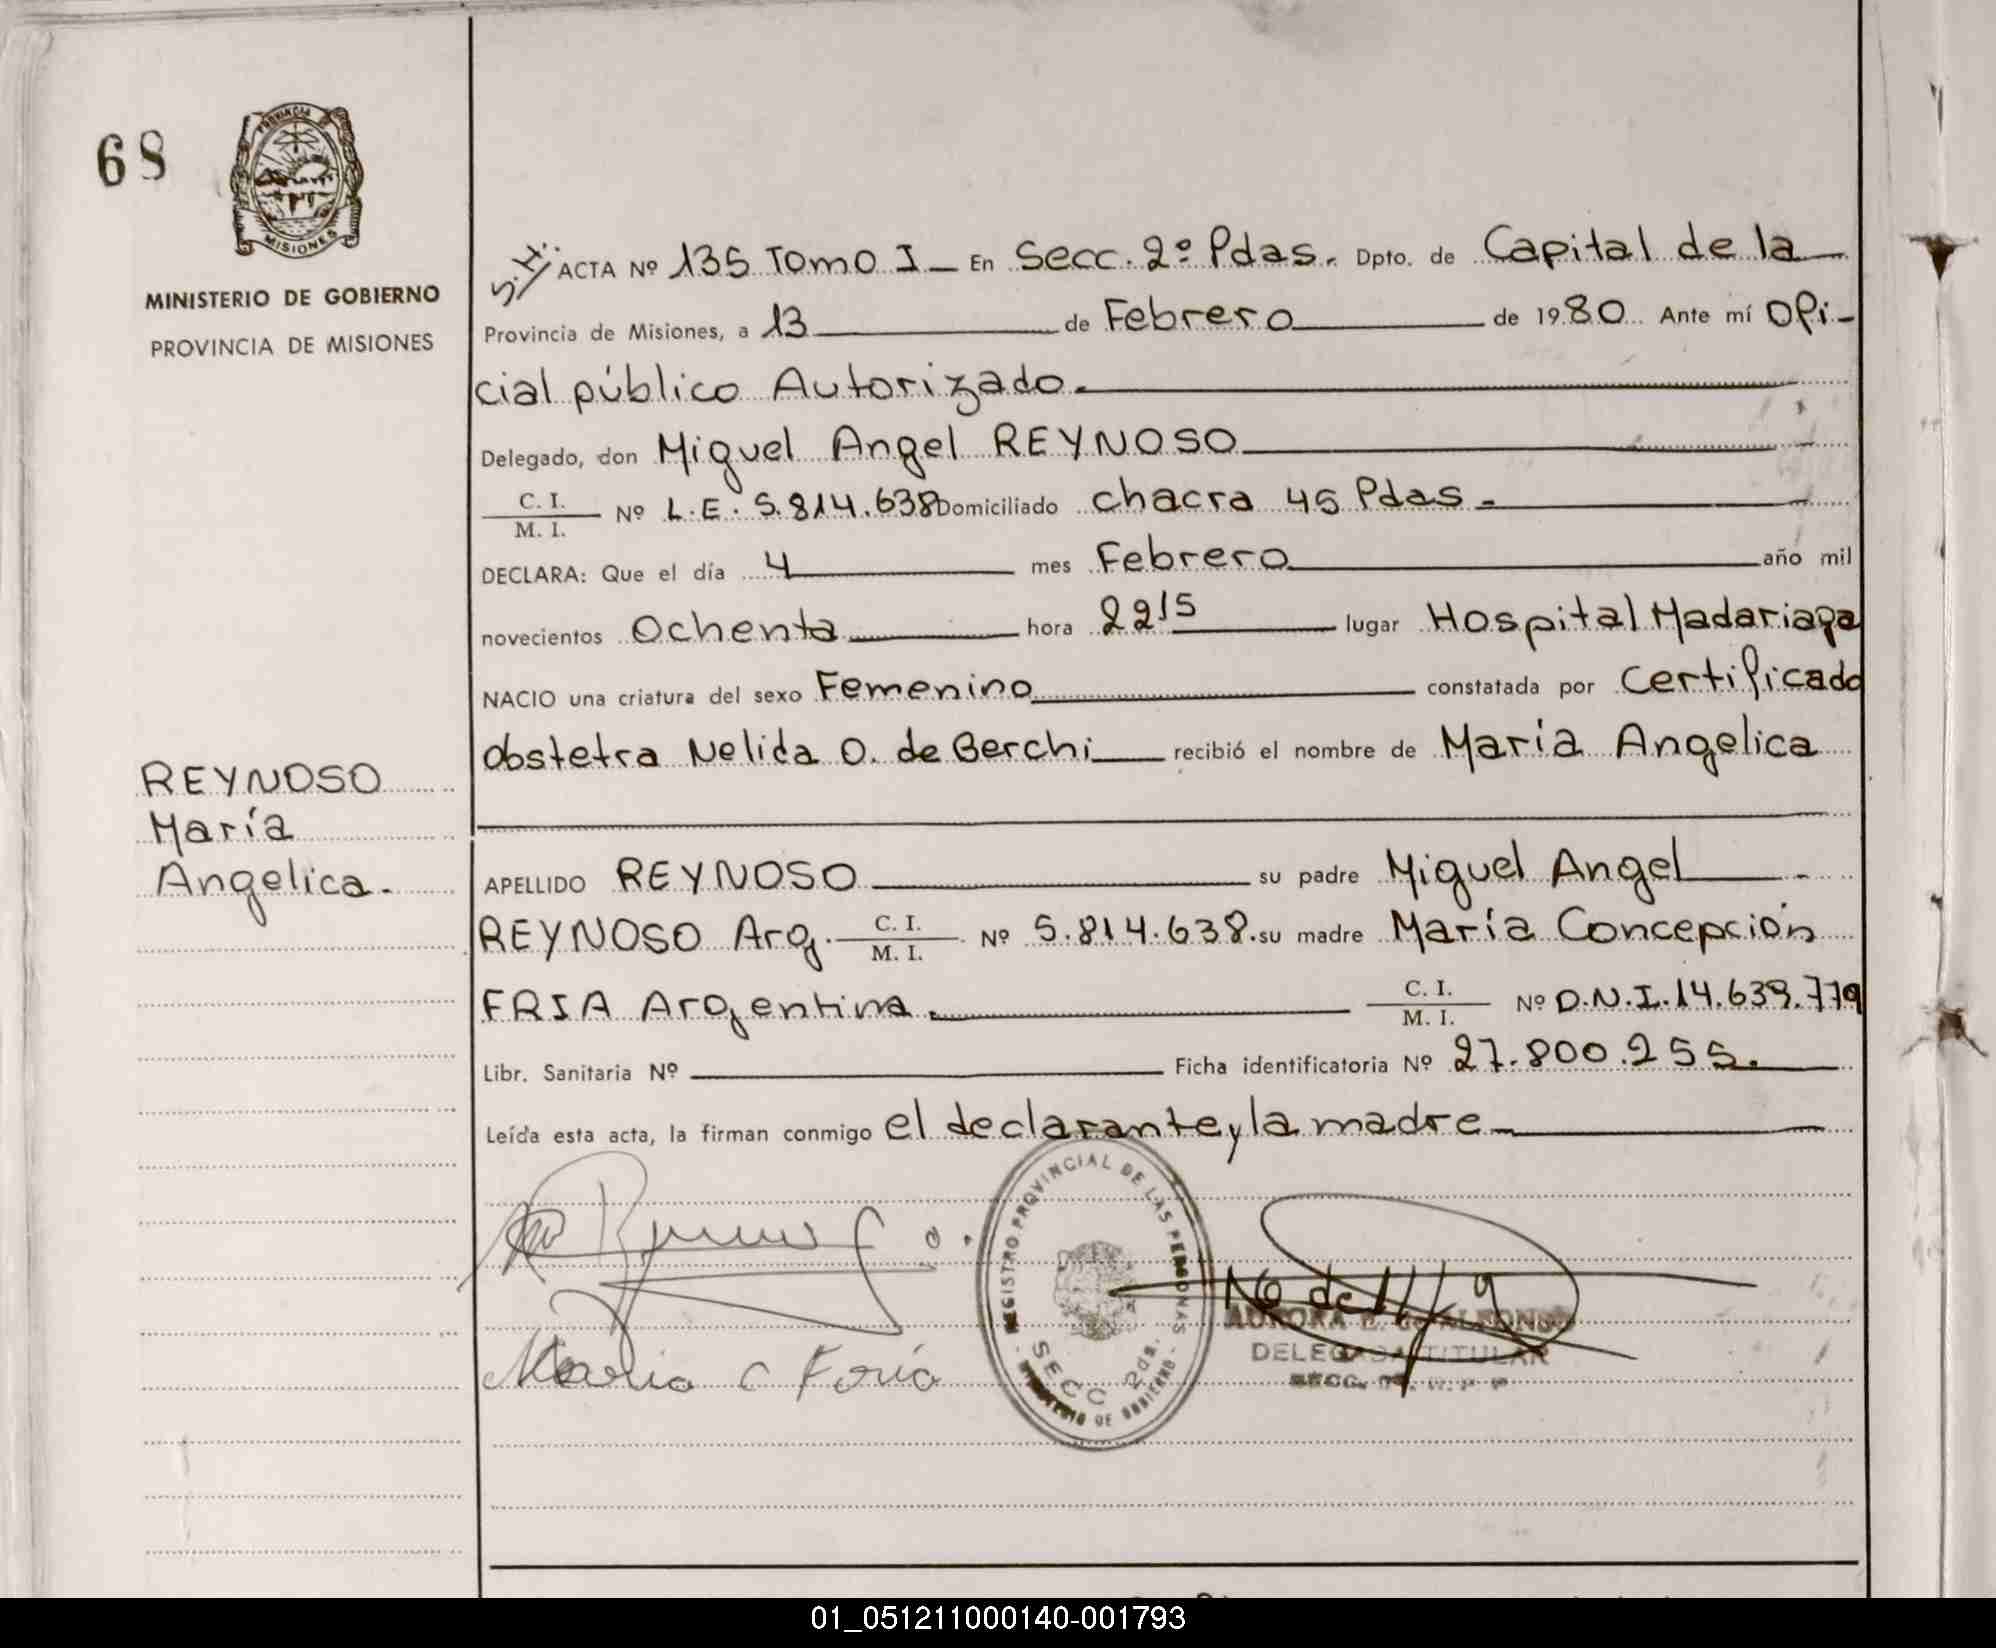 68
PROVINCIA DE
MISIONES
MINISTERIO DE GOBIERNO
PROVINCIA DE MISIONES
REYNOSO
María
Angelica.
S.H. ACTA Nº 135 Tomo I En Secc. 2º Pdas. Dpto. de Capital de la
Provincia de Misiones, a 13 de Febrero de 1980 Ante mí Ofi-
cial público Autorizado.
Delegado, don Miguel Angel REYNOSO
C. I.
M. I. Nº L.E. 5.814.638 Domiciliado chacra 45 Pdas.
DECLARA: Que el día 4 mes Febrero año mil
novecientos Ochenta hora 22 15 lugar Hospital Madariaga
NACIO una criatura del sexo Femenino constatada por Certificado
Obstetra Nelida O. de Berchi recibió el nombre de María Angelica
APELLIDO REYNOSO su padre Miguel Angel
REYNOSO Arg. C. I. M. I. Nº 5.814.638. su madre María Concepción
FRIA Argentina. C. I. M. I. Nº D.N.I. 14.639.779
Libr. Sanitaria Nº Ficha identificatoria Nº 27.800.255.
Leída esta acta, la firman conmigo el declarante y la madre
REGISTRO PROVINCIAL DE LAS PERSONAS
SECC 2ds.
MINISTERIO DE GOBIERNO
AURORA
DELEGADA TITULAR
SECC.
Maria C
01_051211000140-001793